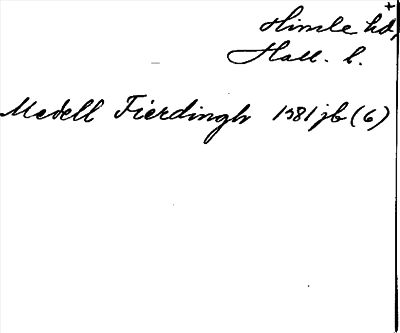 Himle hd,
Hall. l.
Medell Fierdingh 1581 jb (6)